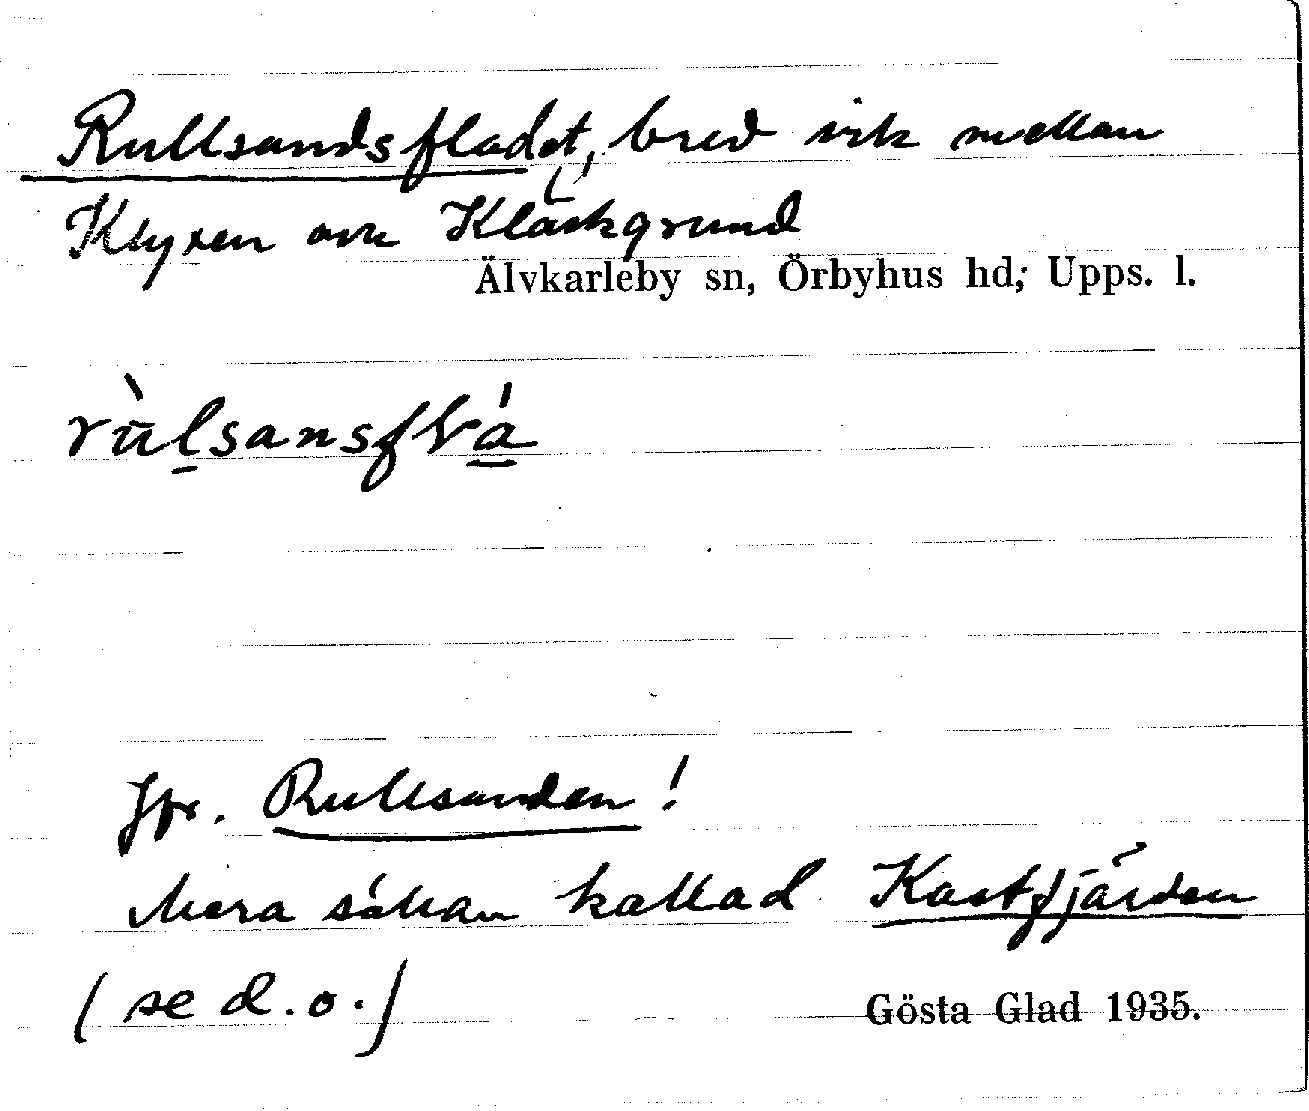 Rullsandsfladet, bred vik mellan
Klyxen och Kläckgrund
Älvkarleby sn, Örbyhus hd, Upps. l.
rùlsansflá
Jfr. Rullsanden!
Mera sällan kallad Kastfjärden
(se d. o.)
Gösta Glad 1935.